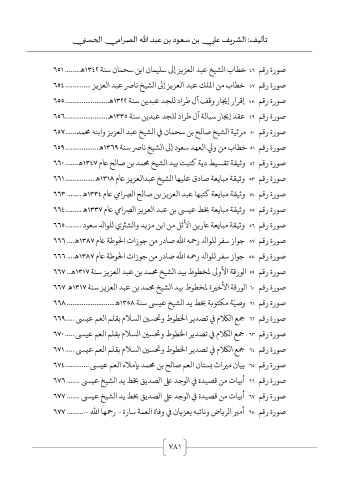 تأليف: الشريف علي بن سعود بن عبد الله الصرامي الحسني
صورة رقم ٤٦ خطاب الشيخ عبد العزيز إلى سليمان ابن سحمان سنة ١٣٤٢هـ ........ ٦٥١
صورة رقم ٤٧ خطاب من الملك عبد العزيز إلى الشيخ ناصر عبد العزيز ............ ٦٥٤
صورة رقم ٤٨ إقرار إيجار وقف آل طراد للجد عبدين سنة ١٣٢٢هـ .................... ٦٥٥
صورة رقم ٤٩ عقد إيجار سبالة آل طراد للجد عبدين سنة ١٣٣٥هـ .................... ٦٥٦
صورة رقم ٥٠ مرثية الشيخ صالح بن سحمان في الشيخ عبد العزيز وابنه محمد ...... ٦٥٧
صورة رقم ٥١ خطاب من ولي العهد سعود إلى الشيخ ناصر سنة ١٣٦٩هـ ............... ٦٥٩
صورة رقم ٥٢ وثيقة تقسيط دية كتبت بيد الشيخ محمد بن صالح عام ١٣٤٧هـ ...... ٦٦٠
صورة رقم ٥٣ وثيقة مبايعة صادق عليها الشيخ عبدالعزيز عام ١٣١٨هـ .............. ٦٦١
صورة رقم ٥٤ وثيقة مبايعة كتبها عبد العزيز بن صالح الصرامي عام ١٣٣٤هـ ....... ٦٦٣
صورة رقم ٥٥ وثيقة مبايعة بخط عيسى بن عبد العزيز الصرامي عام ١٣٣٧هـ ........ ٦٦٤
صورة رقم ٥٦ وثيقة مبايعة عارين الأثل من ابن مزيد والشثري للوالد سعود ........ ٦٦٥
صورة رقم ٥٧ جواز سفر للوالد رحمه الله صادر من جوازات الحوطة عام ١٣٨٧هـ ... ٦٦٦
صورة رقم ٥٨ جواز سفر للوالد رحمه الله صادر من جوازات الحوطة عام ١٣٨٧هـ ... ٦٦٦
صورة رقم ٥٩ الورقة الأولى لمخطوط بيد الشيخ محمد بن عبد العزيز سنة ١٣١٧هـ .. ٦٦٧
صورة رقم ٦٠ الورقة الأخيرة لمخطوط بيد الشيخ محمد بن عبد العزيز سنة ١٣١٧هـ ٦٦٧
صورة رقم ٦١ وصيّة مكتوبة بخط يد الشيخ عيسى سنة ١٣٥٨هـ ...................... ٦٦٨
صورة رقم ٦٢ جمع الكلام في تصدير الخطوط وتحسين السلام بقلم العم عيسى ..... ٦٦٩
صورة رقم ٦٣ جمع الكلام في تصدير الخطوط وتحسين السلام بقلم العم عيسى ..... ٦٧٠
صورة رقم ٦٤ جمع الكلام في تصدير الخطوط وتحسين السلام بقلم العم عيسى ..... ٦٧١
صورة رقم ٦٥ بيان ميراث بستان العم صالح بن محمد بإملاء العم عيسى ............. ٦٧٤
صورة رقم ٦٦ أبيات من قصيدة في الوجد على الصديق بخط يد الشيخ عيسى ...... ٦٧٦
صورة رقم ٦٧ أبيات من قصيدة في الوجد على الصديق بخط يد الشيخ عيسى ...... ٦٧٧
صورة رقم ٦٨ أمير الرياض ونائبه يعزيان في وفاة العمة سارة - رحمها الله - ......... ٦٧٧
٧٨١